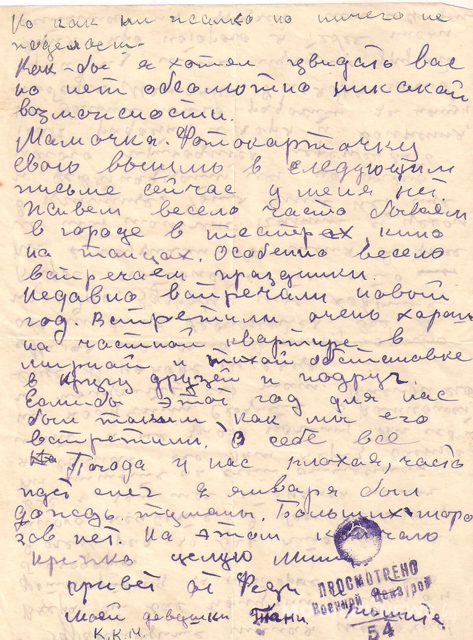 Но как ни жалко но ничего не
поделаеш.
Как-бы я хотел увидать вас
но нет обсолютно никакой
возможности.
Мамочка. Фотокарточку
свою вышлю в следующим
письме сейчас у меня нет.
Живем весело часто бываем
в городе в театрах, кино
на танцах. Особенно весело
встречаем праздники.
Недавно встречали новый
год. Встретили очень хорош
на частной квартире в
мирной и тихой обстановке
в кругу друзей и подруг.
Если-бы этот год для нас
был таким, как мы его
встретили. О себе все
Погода у нас плохая, часто
идет снег 2 января был
дождь, туманы. Больших моро
зов нет. На этом кончаю
крепко целую Миша
привет от Феди
моей девушки Тани.
ПРОСМОТРЕНО
Военной Цензурой
54
К.К.М.